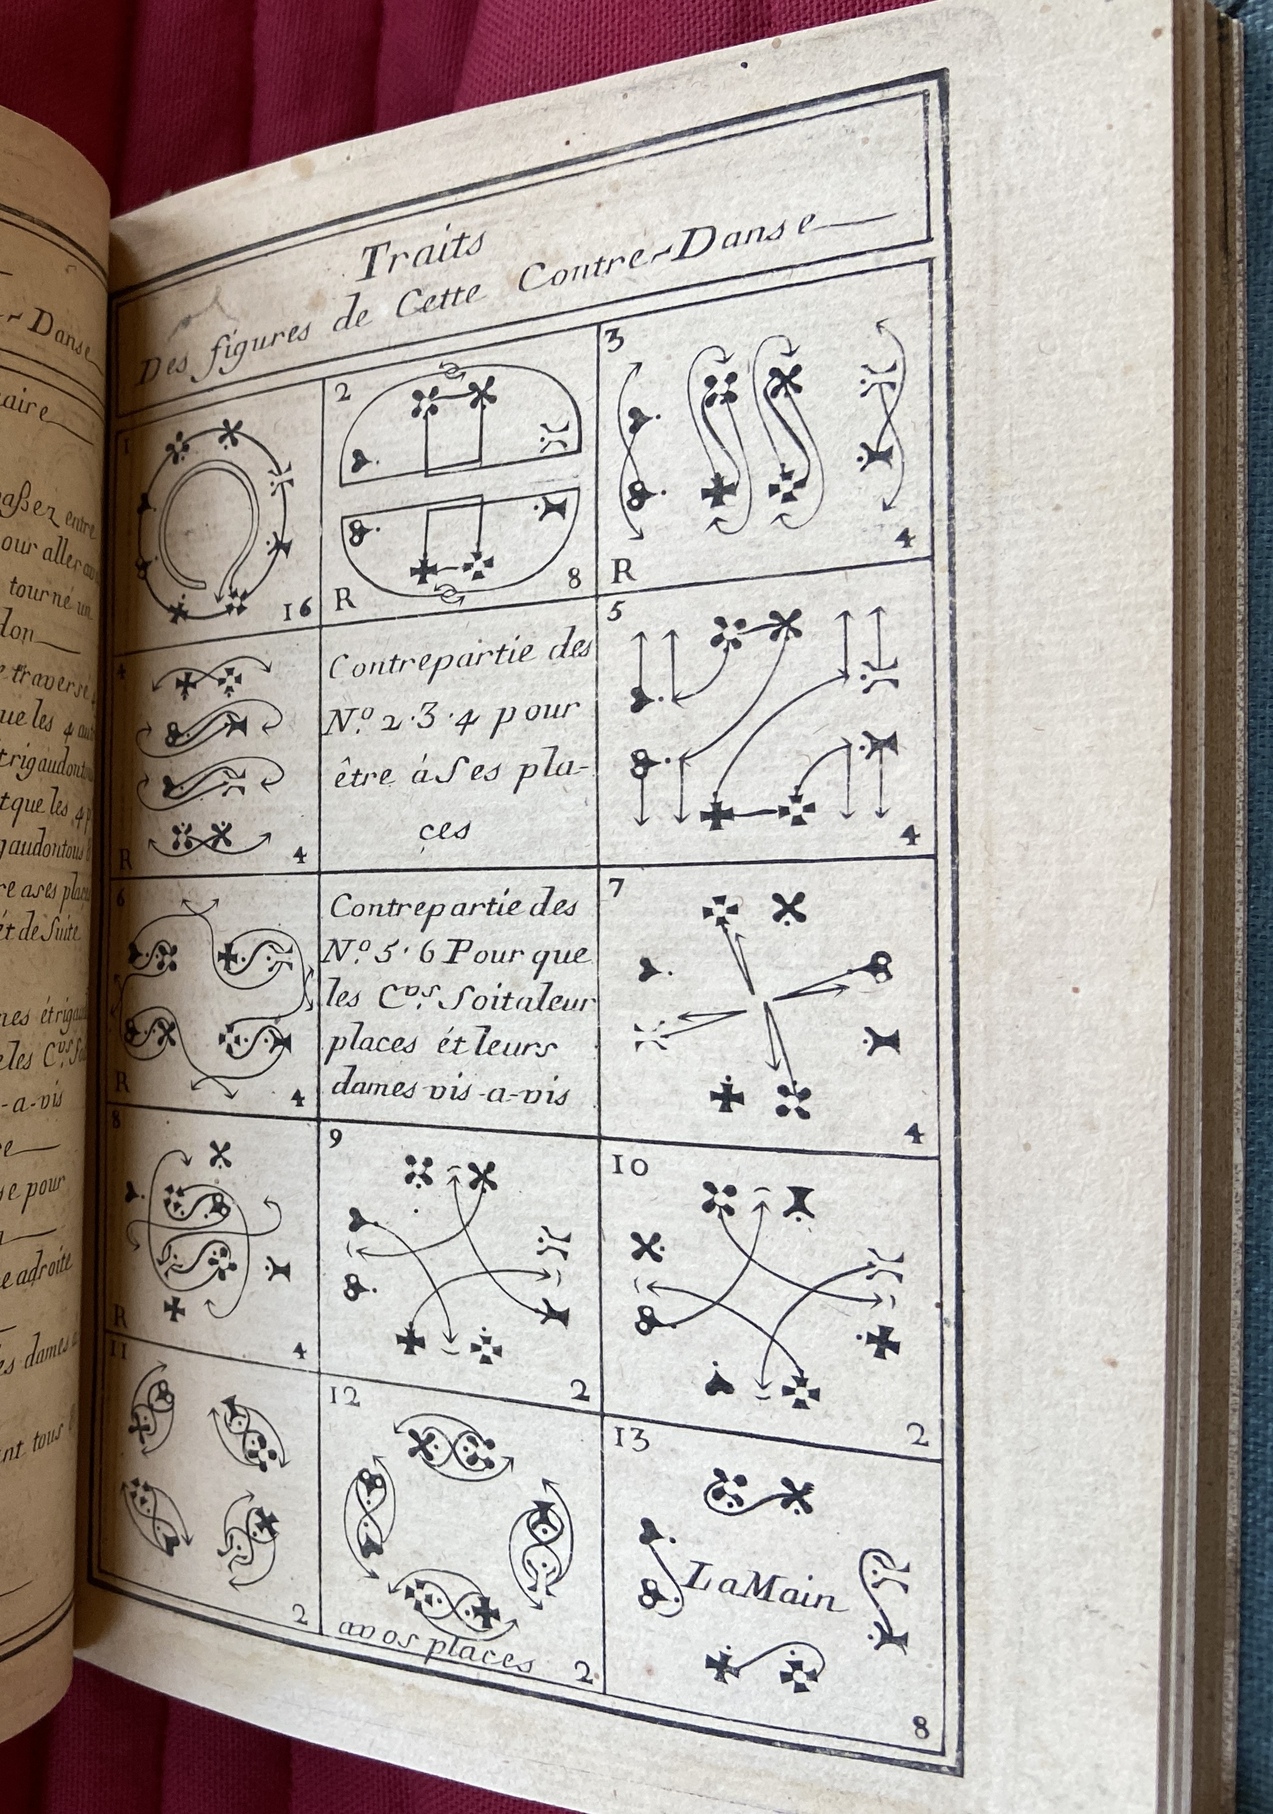 Traits
Des figures de Cette Contre-Danse
1
16
2
R
8
3
R
4
4
R
4
Contrepartie des
N.º 2.3.4 pour
être à Ses pla-
ces
5
4
6
R
4
Contrepartie des
N.º 5.6 Pour que
les C.vrs Soitaleur
places ét leurs
dames vis-a-vis
7
4
8
R
4
9
2
10
2
11
2
12
avos places
2
13
LaMain
8
- Danse
taire
paßez entre
our aller
tourné un
don
traversé
ue les 4
trigaudont
t que les 4
gaudontous
re ases places
ét de Suite
nes étrigau
les C.vrs
-a-vis
se pour
e adroite
és dames
nt tous